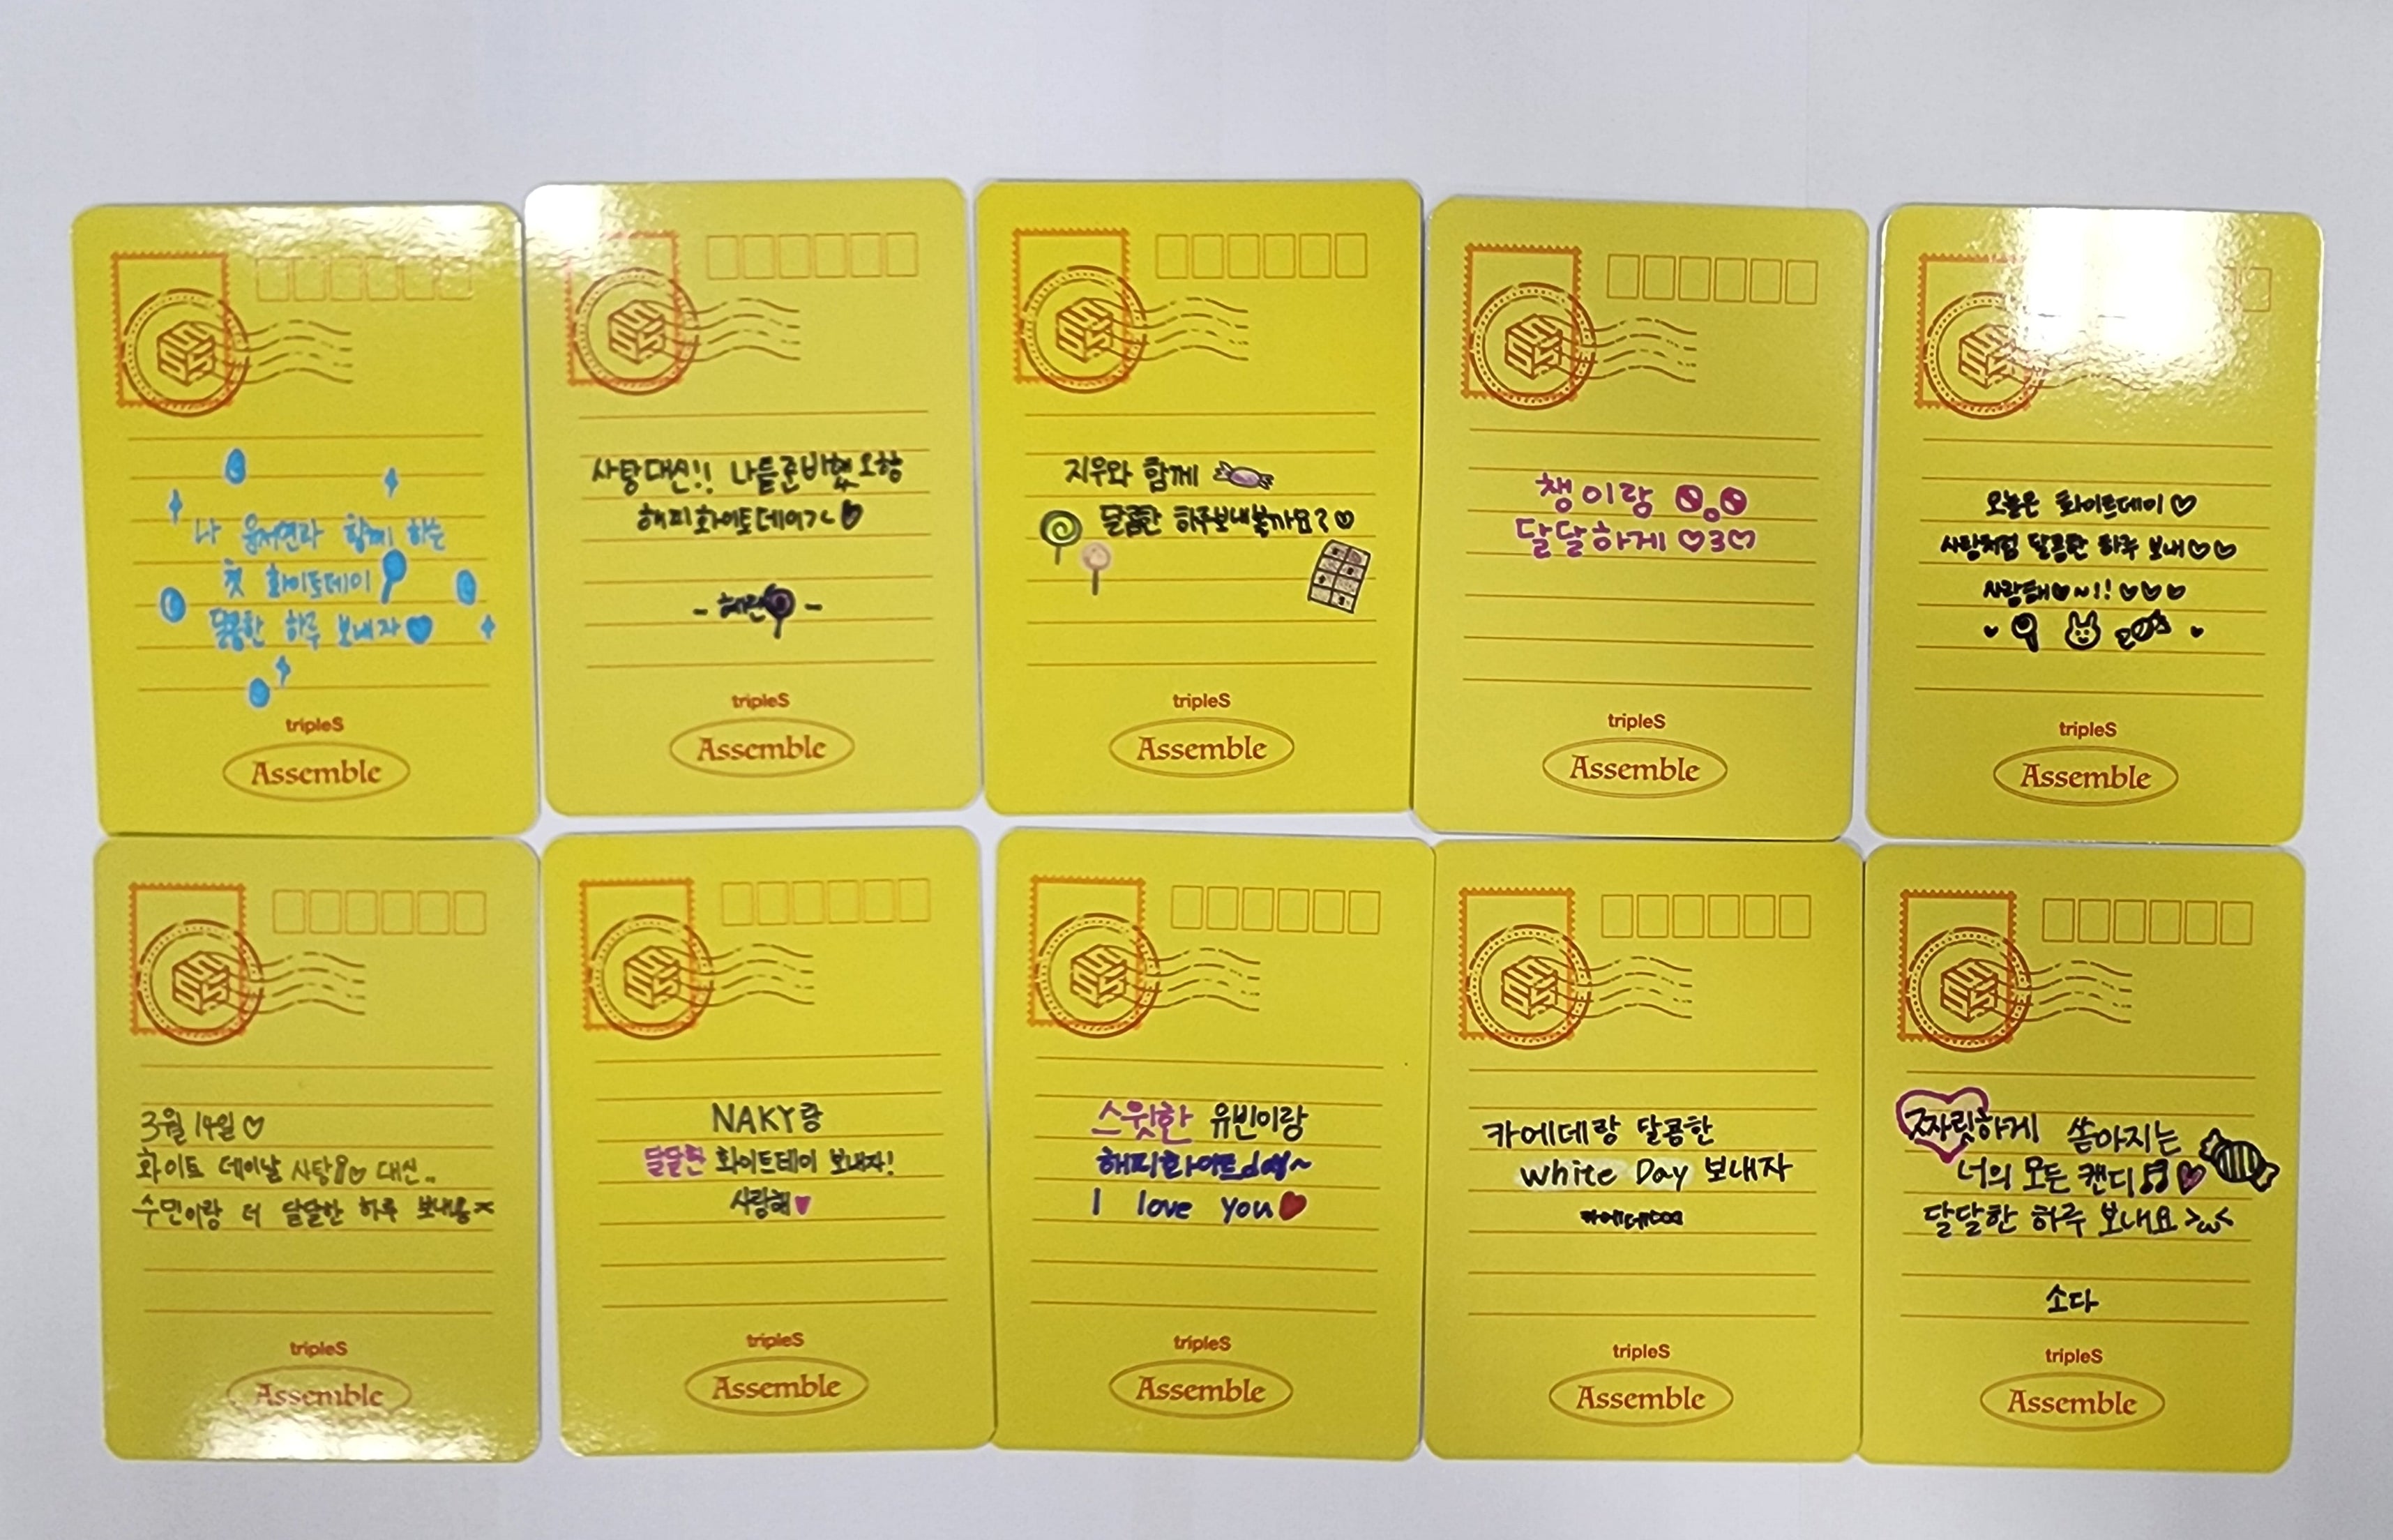 나 윤서연과 함께 하는
첫 화이트데이
달콤한 하루 보내자
tripleS
Assemble
사탕대신!! 나를준비했오항
해피화이트데이
- 혜린 -
tripleS
Assemble
지우와 함께
달콤한 하루보내볼까요?
tripleS
Assemble
챙이랑
달달하게 ♡3♡
tripleS
Assemble
오늘은 화이트데이♡
사탕처럼 달콤한 하루 보내♡♡
사랑해♥~!! ♡♡♡
tripleS
Assemble
3월 14일♡
화이트 데이날 사탕 대신..
수민이랑 더 달달한 하루 보내용
tripleS
Assemble
NAKY랑
달달한 화이트데이 보내자!
사랑해♥
tripleS
Assemble
스윗한 유빈이랑
해피화이트day~
I love you♥
tripleS
Assemble
카에데랑 달콤한
white Day 보내자
카에데
tripleS
Assemble
짜릿하게 쏟아지는
너의 모든 캔디♬♥
달달한 하루 보내요 >ω<
소다
tripleS
Assemble